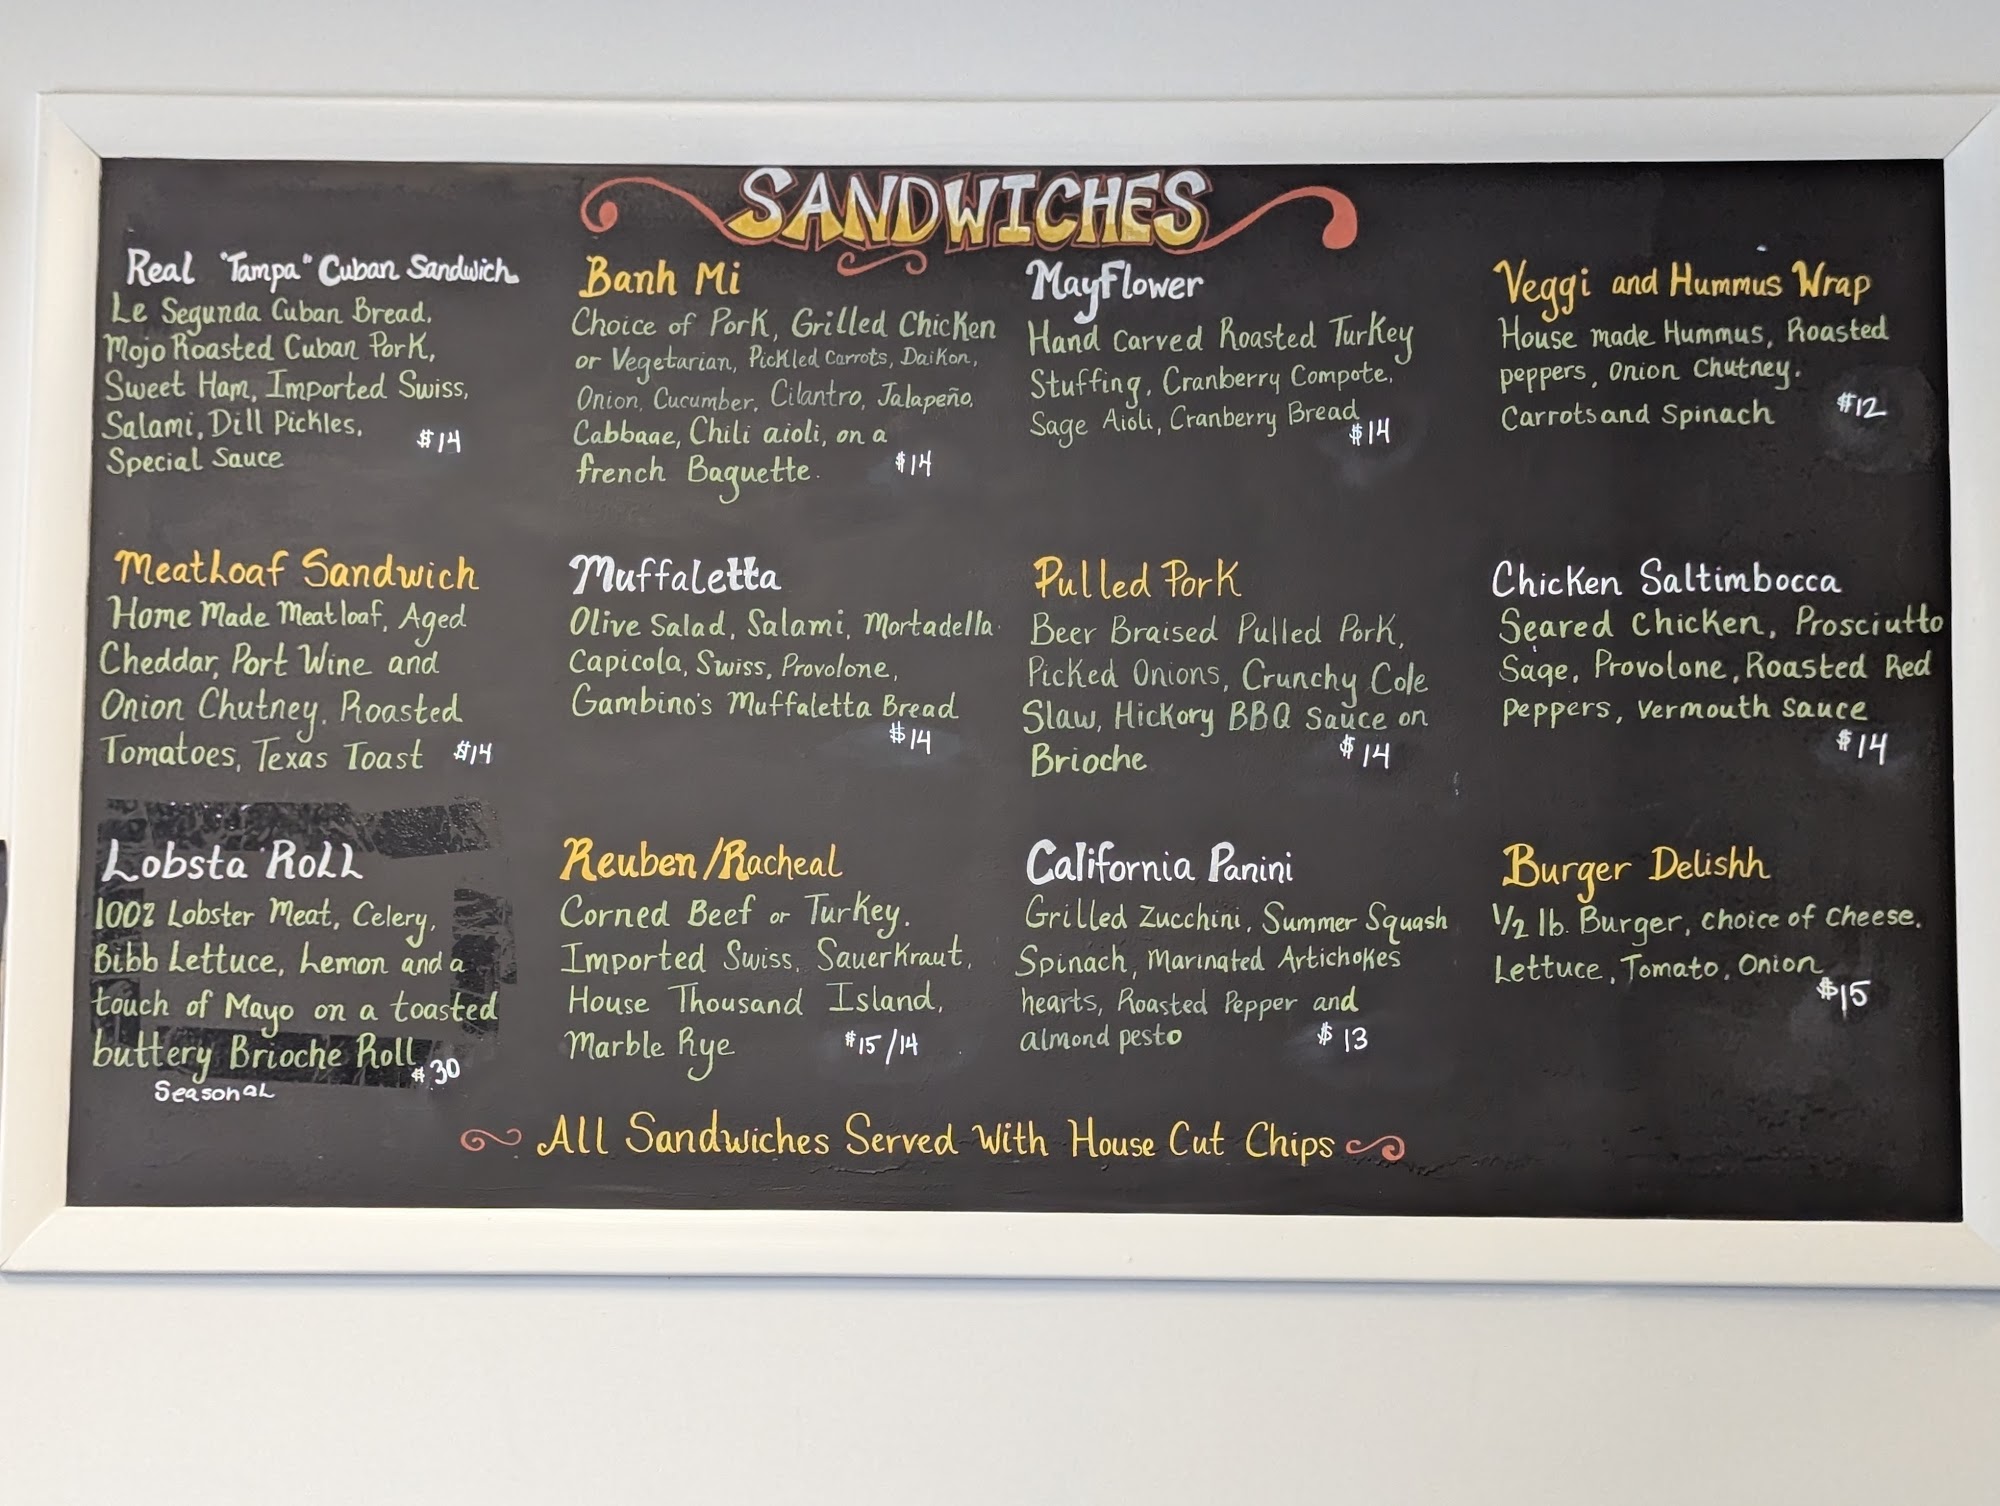 SANDWICHES
Real "Tampa" Cuban Sandwich
Le Segunda Cuban Bread,
Mojo Roasted Cuban Pork,
Sweet Ham, Imported Swiss,
Salami, Dill Pickles,
Special Sauce
$14
Banh Mi
Choice of Pork, Grilled Chicken
or Vegetarian, Pickled Carrots, Daikon,
Onion, Cucumber, Cilantro, Jalapeño,
Cabbage, Chili aioli, on a
french Baguette.
$14
Mayflower
Hand Carved Roasted Turkey
Stuffing, Cranberry Compote,
Sage Aioli, Cranberry Bread
$14
Veggi and Hummus Wrap
House made Hummus, Roasted
peppers, Onion Chutney.
Carrots and Spinach
$12
MeatLoaf Sandwich
Home Made Meatloaf, Aged
Cheddar, Port Wine and
Onion Chutney, Roasted
Tomatoes, Texas Toast $14
Muffaletta
Olive Salad, Salami, Mortadella
Capicola, Swiss, Provolone,
Gambino's Muffaletta Bread
$14
Pulled Pork
Beer Braised Pulled Pork,
Picked Onions, Crunchy Cole
Slaw, Hickory BBQ Sauce on
Brioche
$14
Chicken Saltimbocca
Seared Chicken, Prosciutto
Sage, Provolone, Roasted Red
Peppers, Vermouth Sauce
$14
Lobsta Roll
100% Lobster Meat, Celery,
Bibb Lettuce, Lemon and a
touch of Mayo on a toasted
buttery Brioche Roll
$30
Seasonal
Reuben/Racheal
Corned Beef or Turkey,
Imported Swiss, Sauerkraut,
House Thousand Island,
Marble Rye $15/14
California Panini
Grilled Zucchini, Summer Squash
Spinach, Marinated Artichokes
hearts, Roasted Pepper and
almond pesto $13
Burger Delishh
1/2 lb. Burger, choice of cheese.
Lettuce, Tomato, Onion
$15
All Sandwiches Served With House Cut Chips